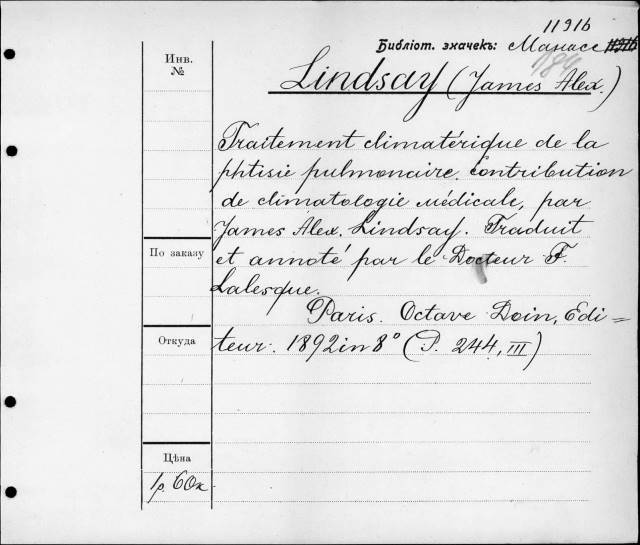 11916
Библіот. значекъ: Манасе 11916
184
Инв.
№
Lindsay (James Alex.)
Traitement climatérique de la
phtisie pulmonaire. Contribution
de climatologie médicale, par
James Alex. Lindsay. Traduit
По заказу
et annoté par le Docteur F.
Lalesque.
Paris. Octave Doin, Edi=
Откуда
teur. 1892 in 8° (P. 244, III)
Цѣна
1р. 60к